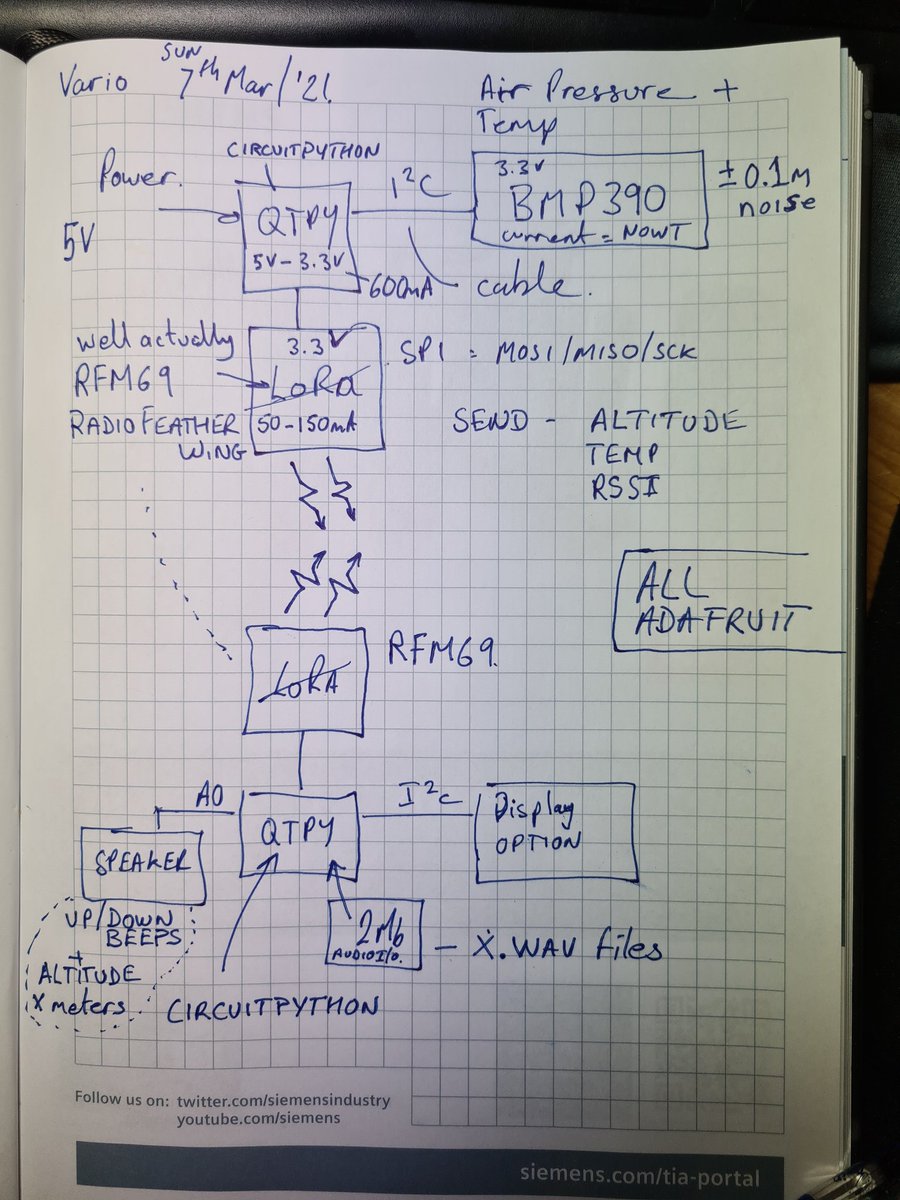 Vario SUN 7th Mar/'21.
Air Pressure +
Temp
CIRCUITPYTHON
Power.
5V
QTPY
5V-3.3V
600mA
I²C
cable.
3.3V
BMP390
current = NOWT
±0.1m
noise
well actually
RFM69
RADIO FEATHER
WING
3.3V
LoRa
50-150mA
SPI = MOSI/MISO/SCK
SEND - ALTITUDE
TEMP
RSSI
ALL
ADAFRUIT
LoRA
RFM69.
A0
QTPY
I²C
Display
OPTION
SPEAKER
UP/DOWN
BEEPS
+
ALTITUDE
X meters.
2Mb
AUDIOI/O.
- X.WAV files
CIRCUITPYTHON
Follow us on: twitter.com/siemensindustry
youtube.com/siemens
siemens.com/tia-portal